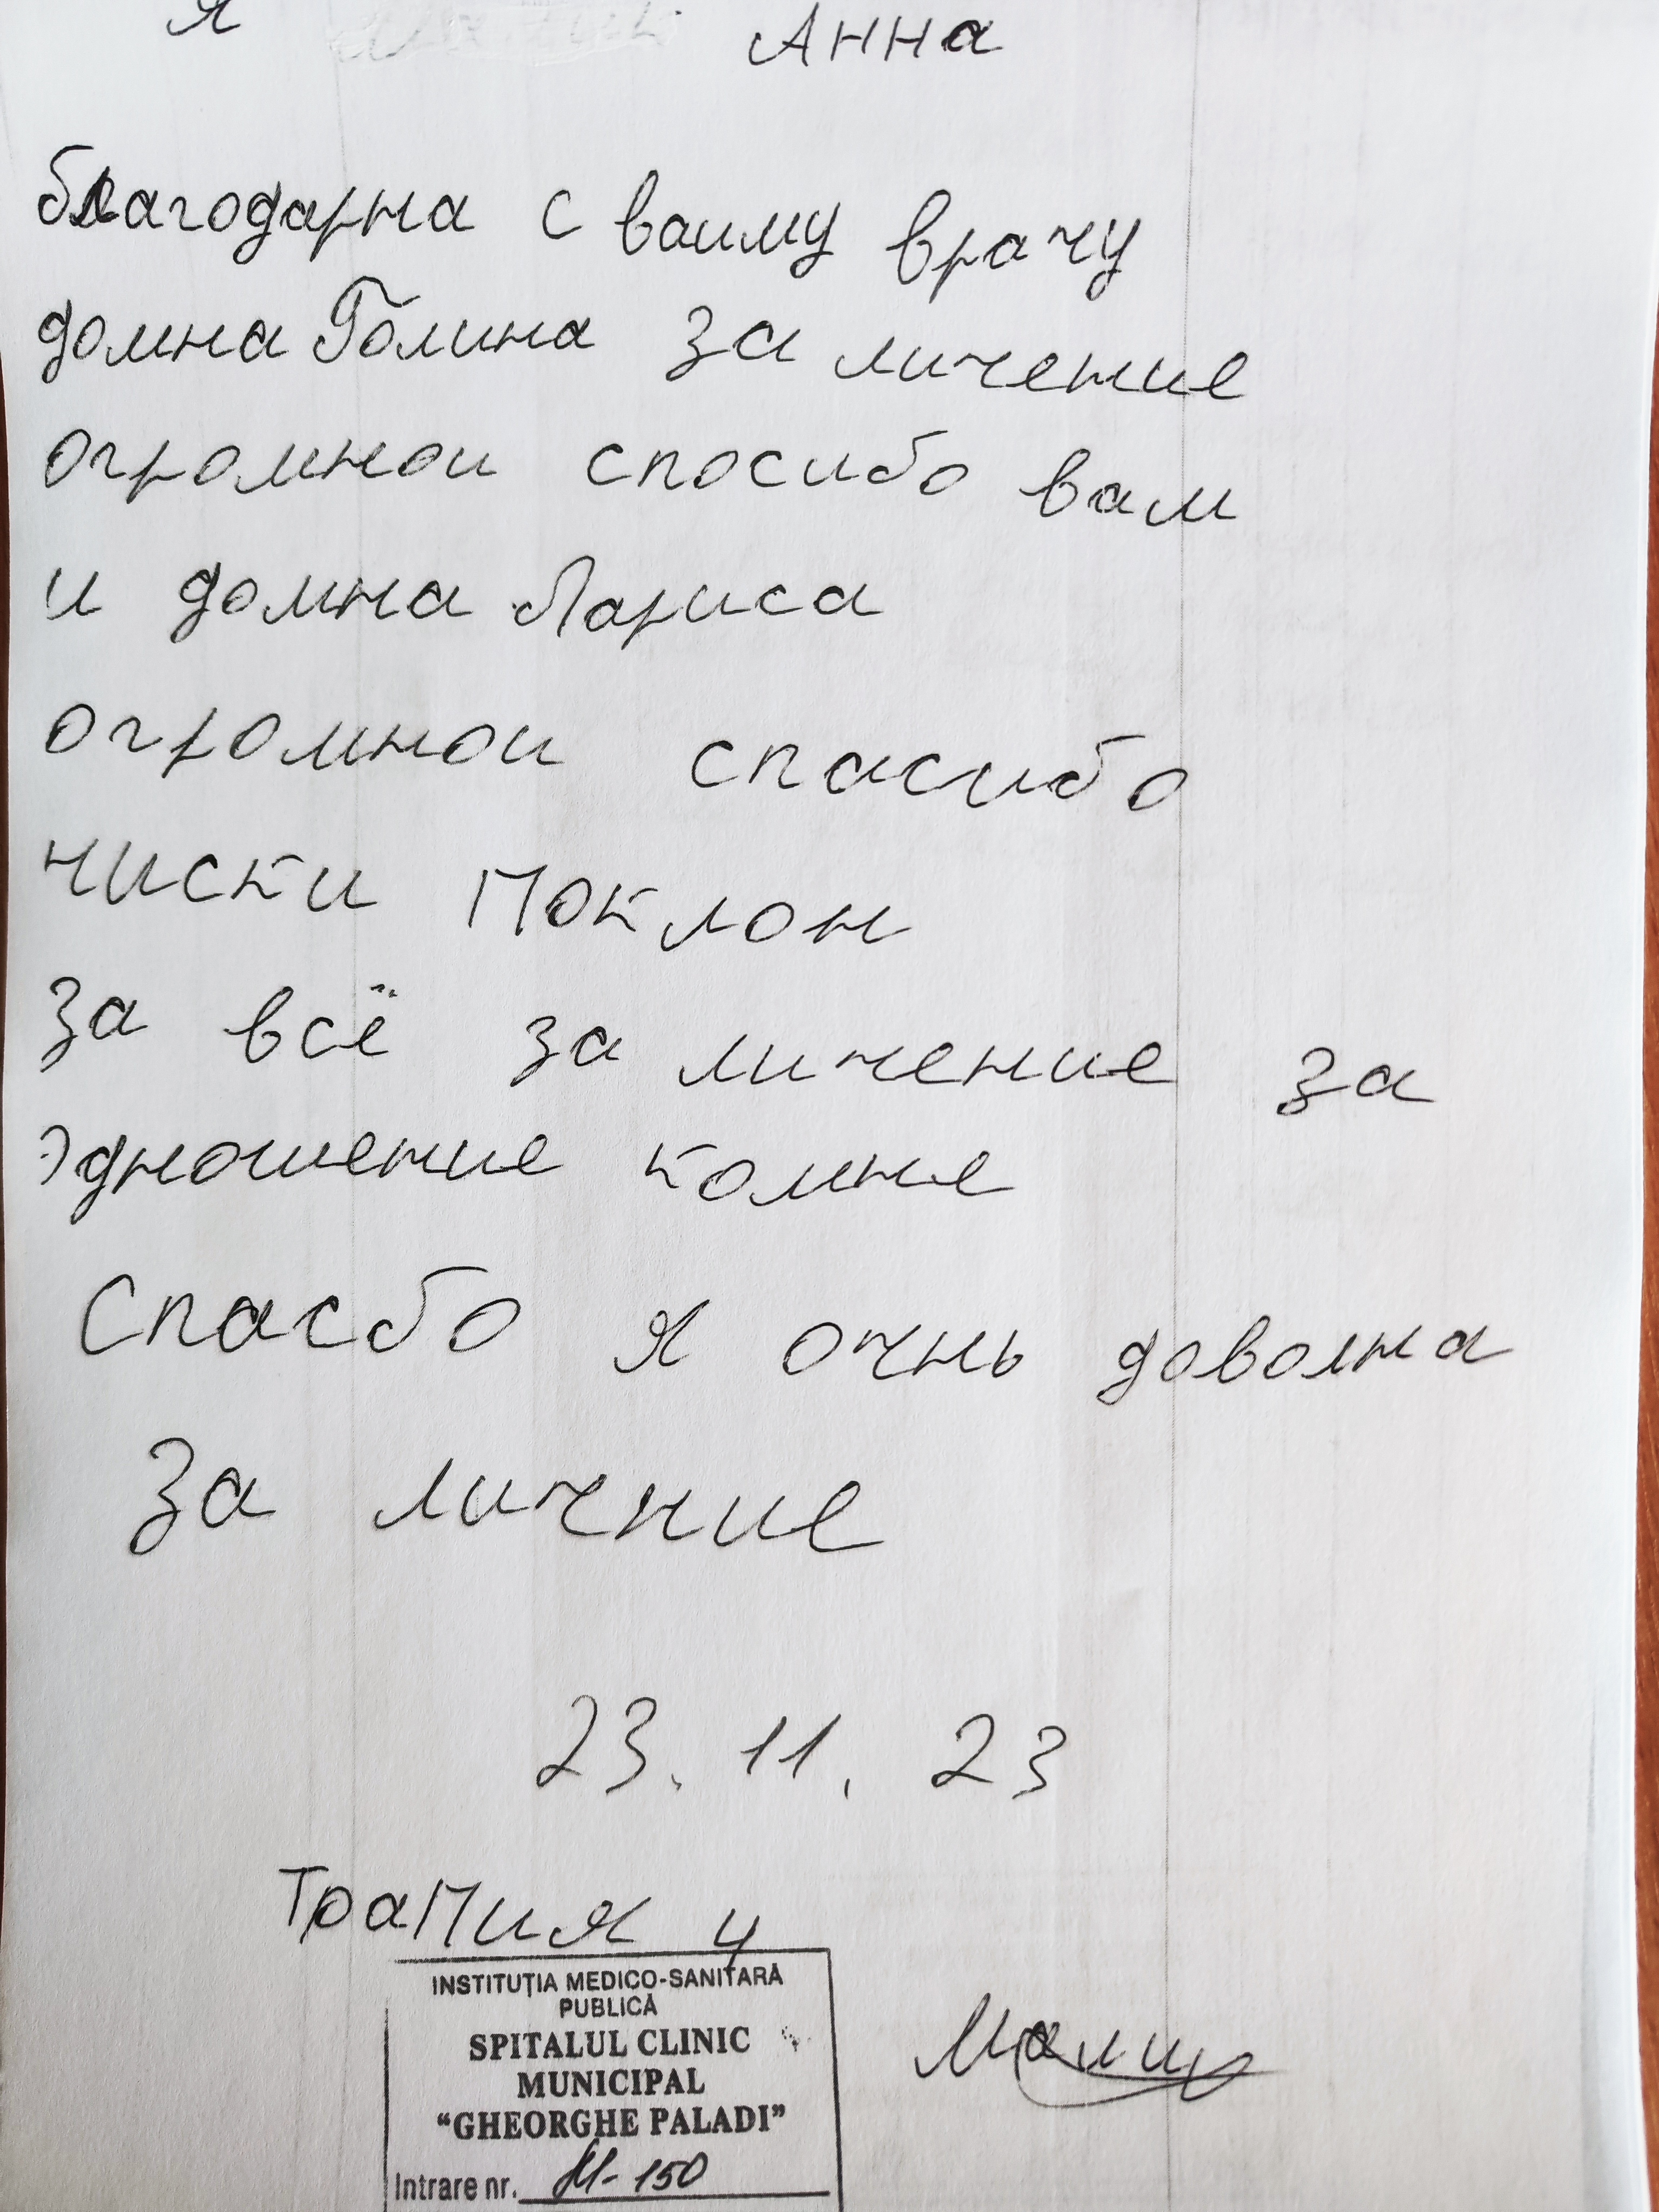 Я Анна
благодарна с вашму врачу
домна Голина за личение
огромнои спосибо вам
и домна Лариса
огромнои спасибо
чиски поклон
за всё за личение за
эдношение комне
Спасбо я очнь доволна
за личние
23.11.23
Трапия 4
INSTITUȚIA MEDICO-SANITARĂ
PUBLICĂ
SPITALUL CLINIC
MUNICIPAL
"GHEORGHE PALADI"
Intrare nr. M-150